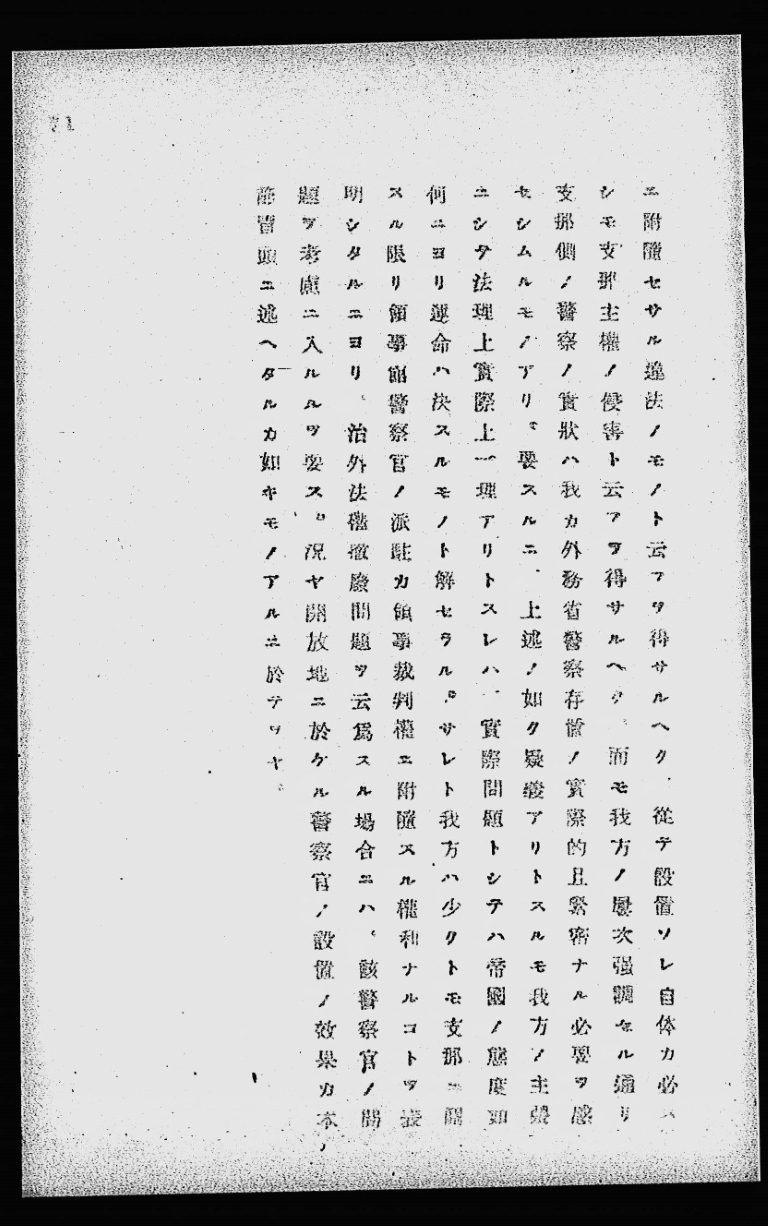 71
ニ附隨セサル違法ノモノト云フヲ得サルヘク、從テ設置ソレ自体カ必ス
シモ支那主權ノ侵害ト云フヲ得サルヘク、而モ我方ノ屡次强調セル通リ
支那側ノ警察ノ實狀ハ我カ外務省警察存置ノ實際的且緊密ナル必要ヲ感
セシムルモノアリ。要スルニ、上述ノ如ク疑義アリトスルモ我方ノ主張
ニシテ法理上實際上一理アリトスレハ、實際問題トシテハ帝國ノ態度如
何ニヨリ運命ハ決スルモノト解セラル。サレト我方ハ少クトモ支那ニ關
スル限リ領事館警察官ノ派駐カ領事裁判權ニ附隨スル權利ナルコトヲ表
明シタルニヨリ、治外法權撤廢問題ヲ云爲スル場合ニハ、該警察官ノ問
題ヲ考慮ニ入ルルヲ要ス。況ヤ開放地ニ於ケル警察官ノ設置ノ效果カ本ノ
冒頭ニ述ヘタルカ如キモノアルニ於テヲヤ。